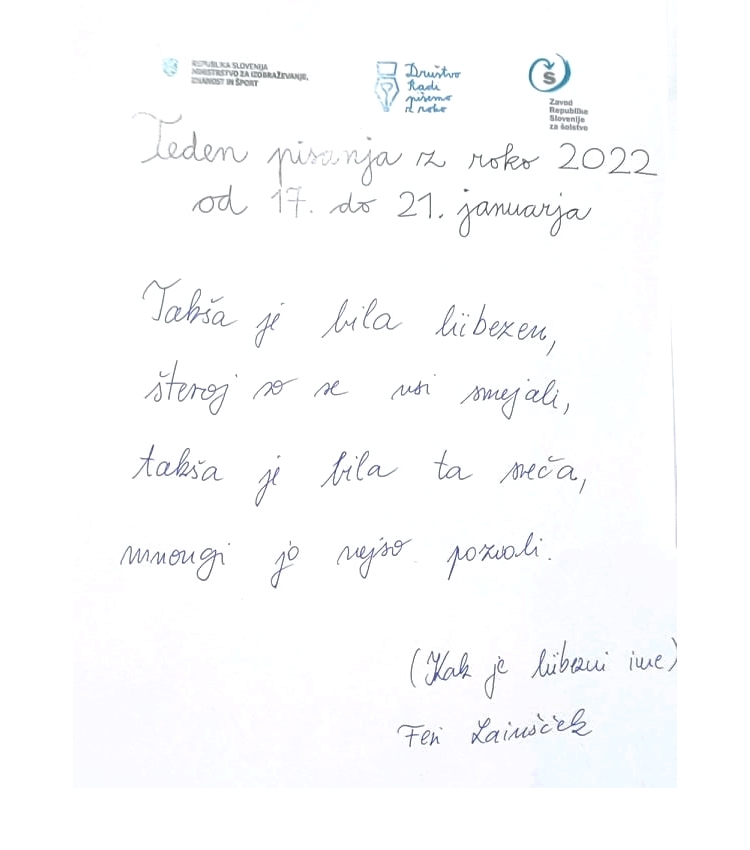 REPUBLIKA SLOVENIJA
MINISTRSTVO ZA IZOBRAŽEVANJE,
ZNANOST IN ŠPORT
Društvo
Radi
pišemo
z roko
Š
Zavod
Republike
Slovenije
za šolstvo
Teden pisanja z roko 2022
od 17. do 21. januarja
Takša je bila lübezen,
šteroj so se vsi smejali,
takša je bila ta sreča,
mnougi jo nejso poznali.
(Kak je lübezni ime)
Feri Lainšček